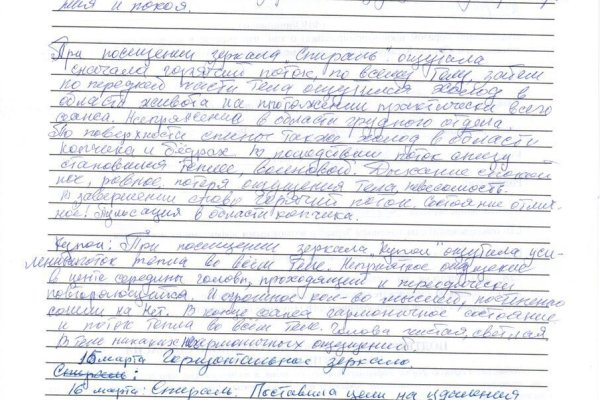 ния и покоя.
При посещении зеркала "Спираль" ощутила
сначала горячий поток, по всему телу, затем
по передней части тела ощущался холод в
области живота на протяжении практически всего
сеанса. Напряжение в области грудного отдела.
По поверхности спины также холод в области
копчика и бедрах. В последствии поток снизу
становился теплее, волновой. Дыхание спокой
ное, ровное, потеря ощущения тела, невесомость.
В завершении снова горячий поток. Состояние отлич-
ное. Пульсация в области копчика.
Купол: При посещении зеркала "Купол" ощутила уси-
ление поток тепла во всём теле. Неприятное ощущение
в центе середины головы, проходящий и периодически
повторяющийся. И огромное кол-во мыслей, постепенно
сошли на нет. В конце сеанса гармоничное состояние
и поток тепла во всём теле. Голова чистая, светлая,
в теле никаких не гармоничных ощущений.
15 марта Горизонтальное зеркало.
Спираль:
16 марта: Спираль. Поставила цели на удаления